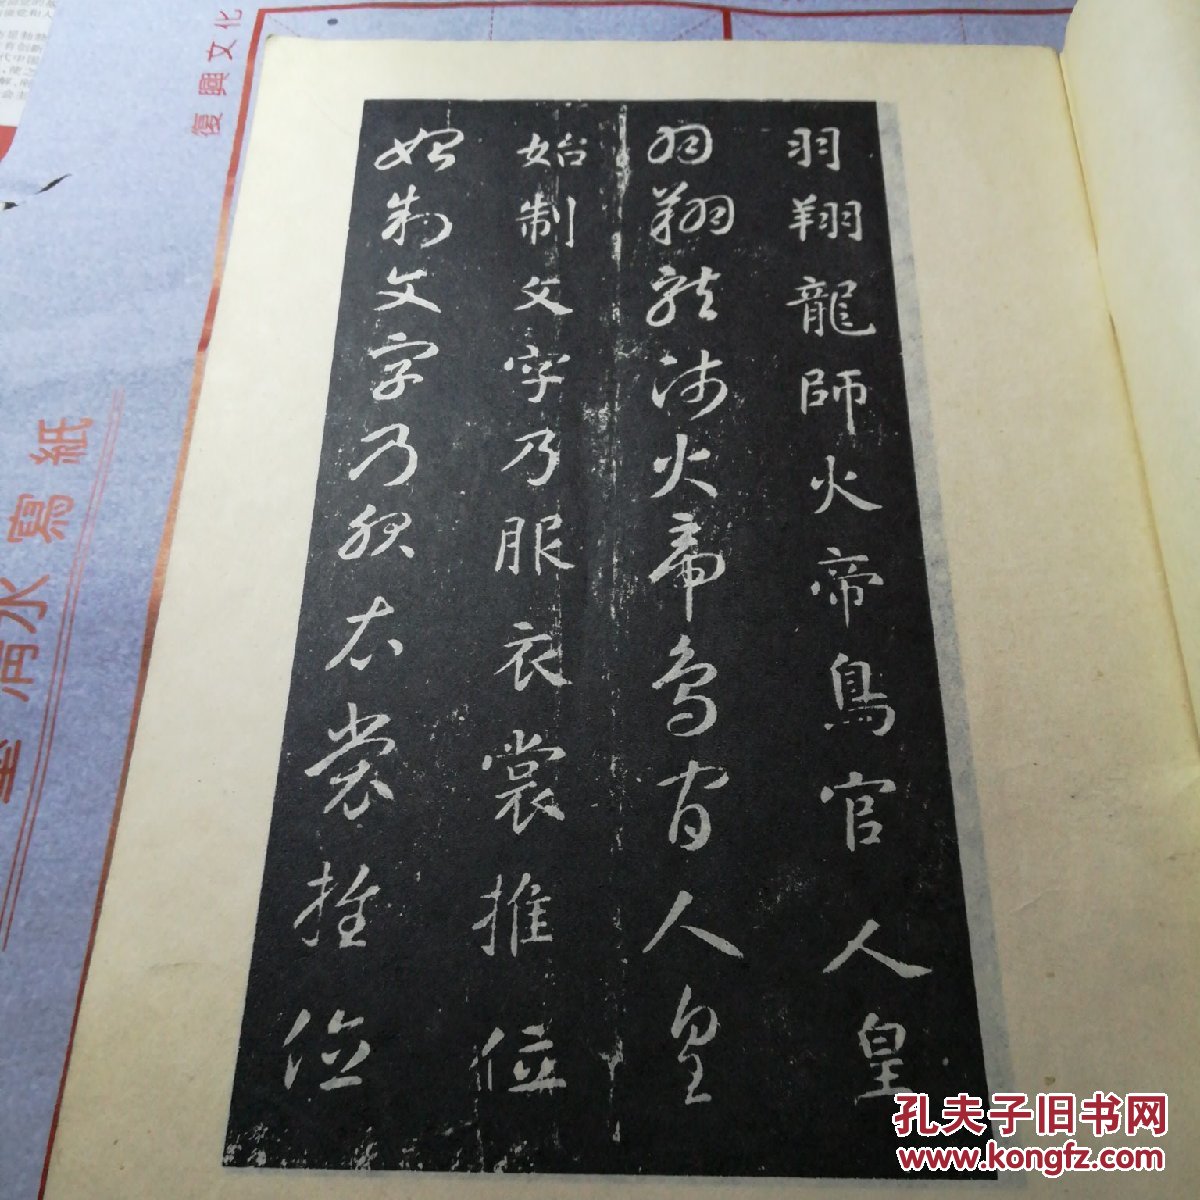 羽翔龍師火帝鳥官人皇
羽翔龍師火帝鳥官人皇
始制文字乃服衣裳推位
始制文字乃服衣裳推位
復興文化
寫紙
水
孔夫子旧书网
www.kongfz.com